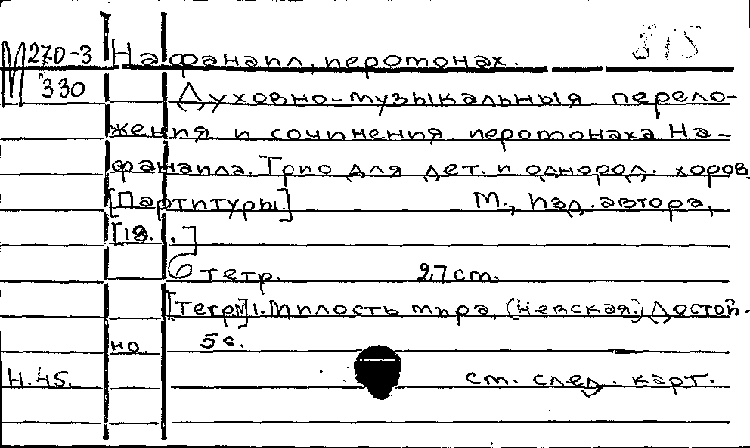 М 270-3 Нафанаил, иеромонах. 815
330 Духовно-музыкальныя перело-
жения и сочинения иеромонаха На-
фанаила. Трио для дет. и однород. хоров
[Партитуры] М., Изд. автора,
[18. .]
6 тетр. 27 cm.
[Тетр. №] 1. Милость мира. (Невская.) Достой-
но. 5 с.
Н.45. см. след. карт.